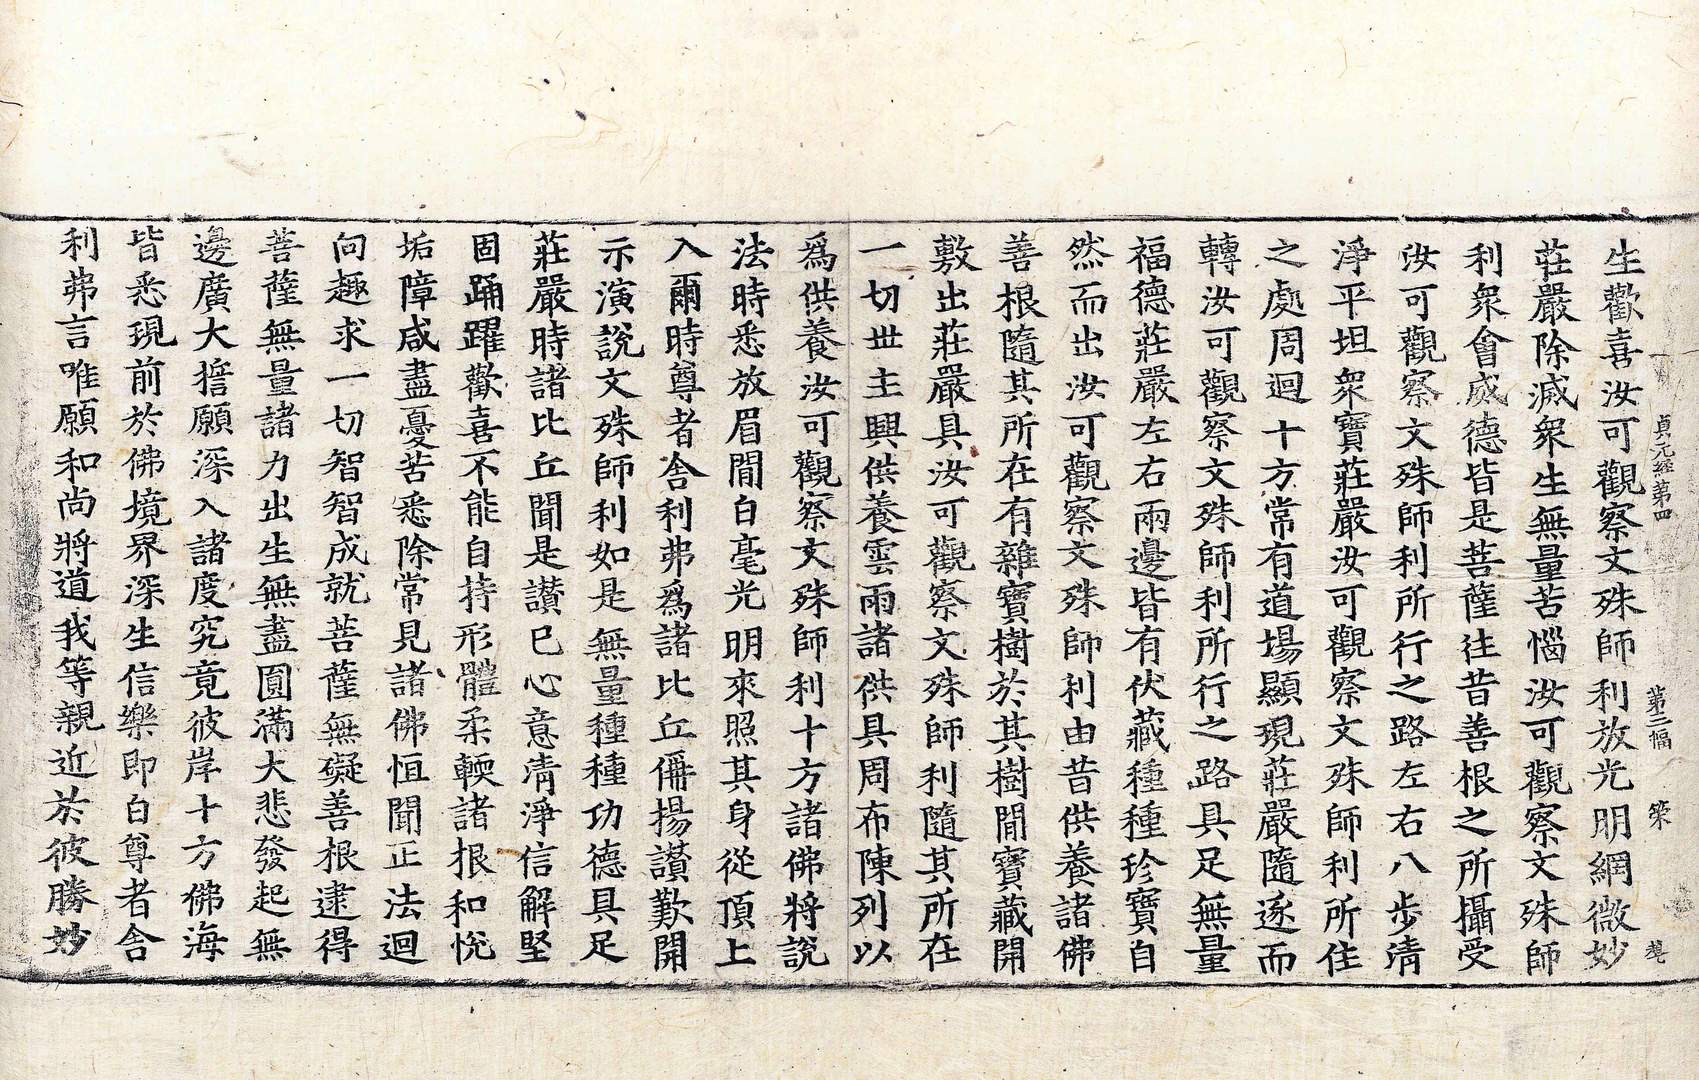 貞元經第四 第三幅 榮
生歡喜汝可觀察文殊師利放光明網微妙
莊嚴除滅衆生無量苦惱汝可觀察文殊師
利衆會威德皆是菩薩往昔善根之所攝受
汝可觀察文殊師利所行之路左右八步清
淨平坦衆寶莊嚴汝可觀察文殊師利所住
之處周迴十方常有道場顯現莊嚴隨逐而
轉汝可觀察文殊師利所行之路具足無量
福德莊嚴左右兩邊皆有伏藏種種珍寶自
然而出汝可觀察文殊師利由昔供養諸佛
善根隨其所在有雜寶樹於其樹間寶藏開
敷出莊嚴具汝可觀察文殊師利隨其所在
一切世主興供養雲雨諸供具周布陳列以
爲供養汝可觀察文殊師利十方諸佛將說
法時悉放眉間白毫光明來照其身從頂上
入爾時尊者舍利弗爲諸比丘偁揚讃歎開
示演說文殊師利如是無量種種功德具足
莊嚴時諸比丘聞是讃已心意清淨信解堅
固踊躍歡喜不能自持形體柔輭諸根和悅
垢障咸盡憂苦悉除常見諸佛恒聞正法迴
向趣求一切智智成就菩薩無礙善根逮得
菩薩無量諸力出生無盡圓滿大悲發起無
邊廣大誓願深入諸度究竟彼岸十方佛海
皆悉現前於佛境界深生信樂即白尊者舍
利弗言唯願和尚將道我等親近於彼勝妙